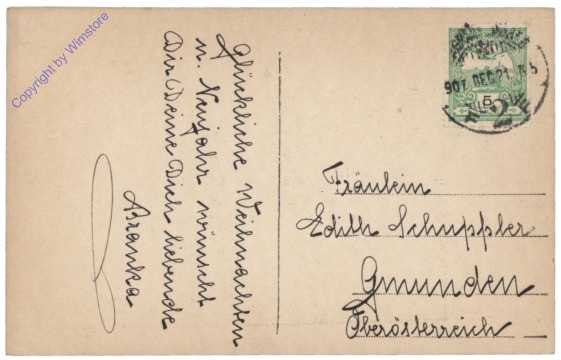 Glückliche Weihnachten
u. Neujahr wünscht
Dir Deine Dich liebende
Aranka
Fräulein
Edith Schuppler
Gmunden
Oberösterreich
907 DEC. 21.
5
Copyright by Wimstore